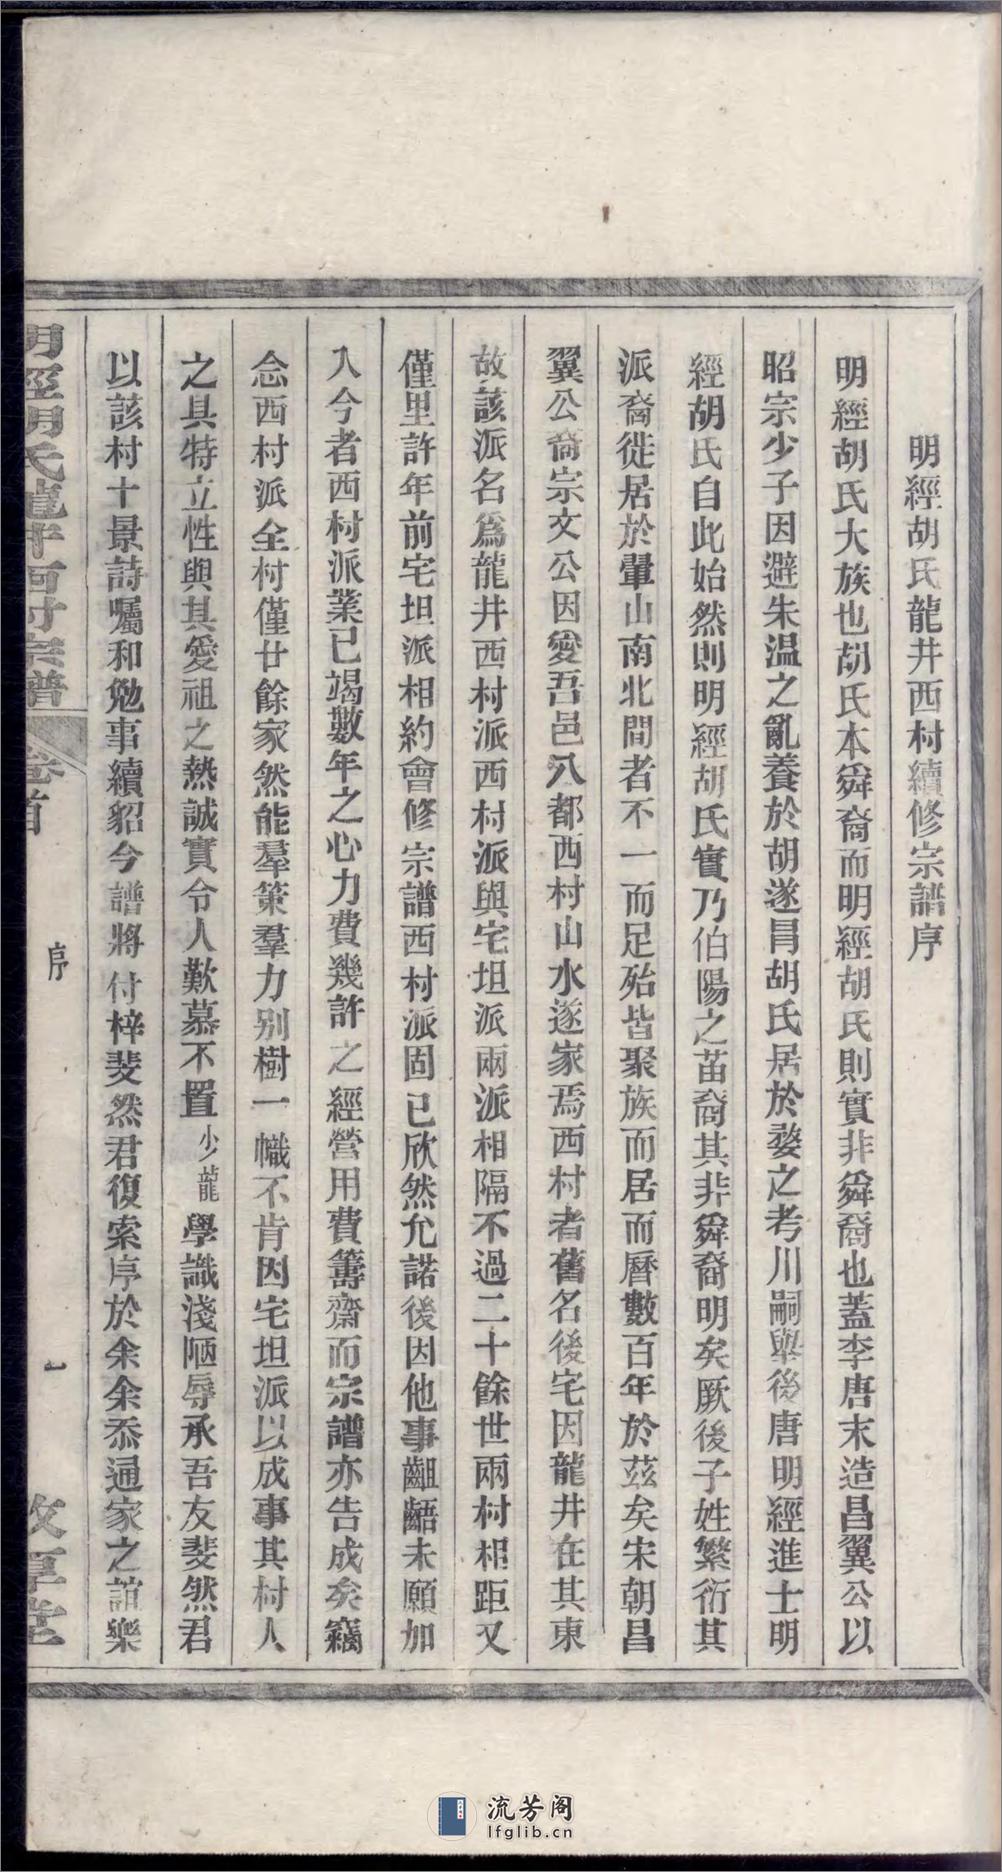 明經胡氏龍井西村續修宗譜序
明經胡氏大族也胡氏本舜裔而明經胡氏則實非舜裔也蓋李唐末造昌翼公以
昭宗少子因避朱溫之亂養於胡遂冐胡氏居於婺之考川嗣舉後唐明經進士明
經胡氏自此始然則明經胡氏實乃伯陽之苗裔其非舜裔明矣厥後子姓繁衍其
派裔徙居於翬山南北間者不一而足殆皆聚族而居而曆數百年於茲矣宋朝昌
翼公裔宗文公因愛吾邑八都西村山水遂家焉西村者舊名後宅因龍井在其東
故該派名爲龍井西村派西村派與宅坦派兩派相隔不過二十餘世兩村相距又
僅里許年前宅坦派相約會修宗譜西村派固已欣然允諾後因他事齟齬未願加
入今者西村派業已竭數年之心力費幾許之經營用費籌齋而宗譜亦告成矣竊
念西村派全村僅廿餘家然能羣策羣力別樹一幟不肯因宅坦派以成事其村人
之具特立性與其愛祖之熱誠實令人歎慕不置少龍學識淺陋辱承吾友斐然君
以該村十景詩囑和勉事續貂今譜將付梓斐然君復索序於余余忝通家之誼樂
明經胡氏龍井西村宗譜 卷首 序 一 敦厚堂
流芳阁
lfglib.cn